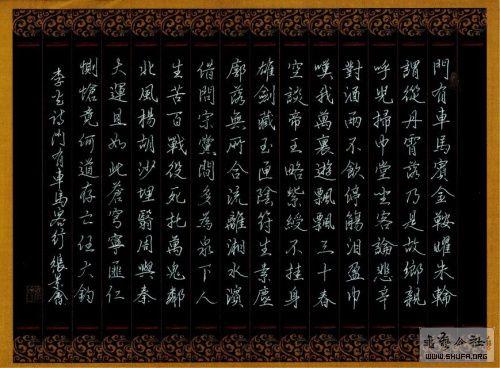 門有車馬賓金鞍曜朱輪
謂從丹霄落乃是故鄉親
呼兒掃中堂坐客論悲辛
對酒兩不飲停觴泪盈巾
嘆我萬裏遊飄飄三十春
空談帝王略紫綬不挂身
雄劍藏玉匣陰符生素塵
廓落無所合流離湘水濱
借問宗黨間多為泉下人
生苦百戰役死托萬鬼鄰
北風揚胡沙埋翳周與秦
大運且如此蒼穹寧匪仁
惻愴竟何道存亡任大鈞
李白詩門有車馬客行 張
WWW.SHUFA.ORG